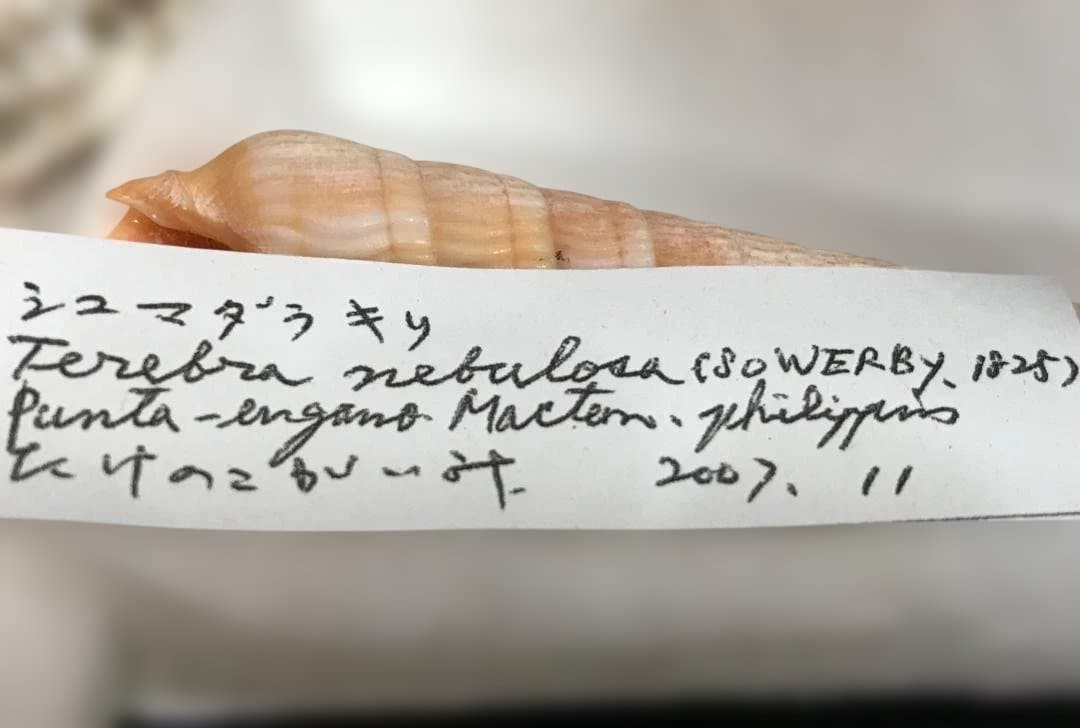 シュマダラキリ
Terebra nebulosa (SOWERBY, 1825)
Punta-engano. Mactan. philippins
たけのこがい科. 2007. 11